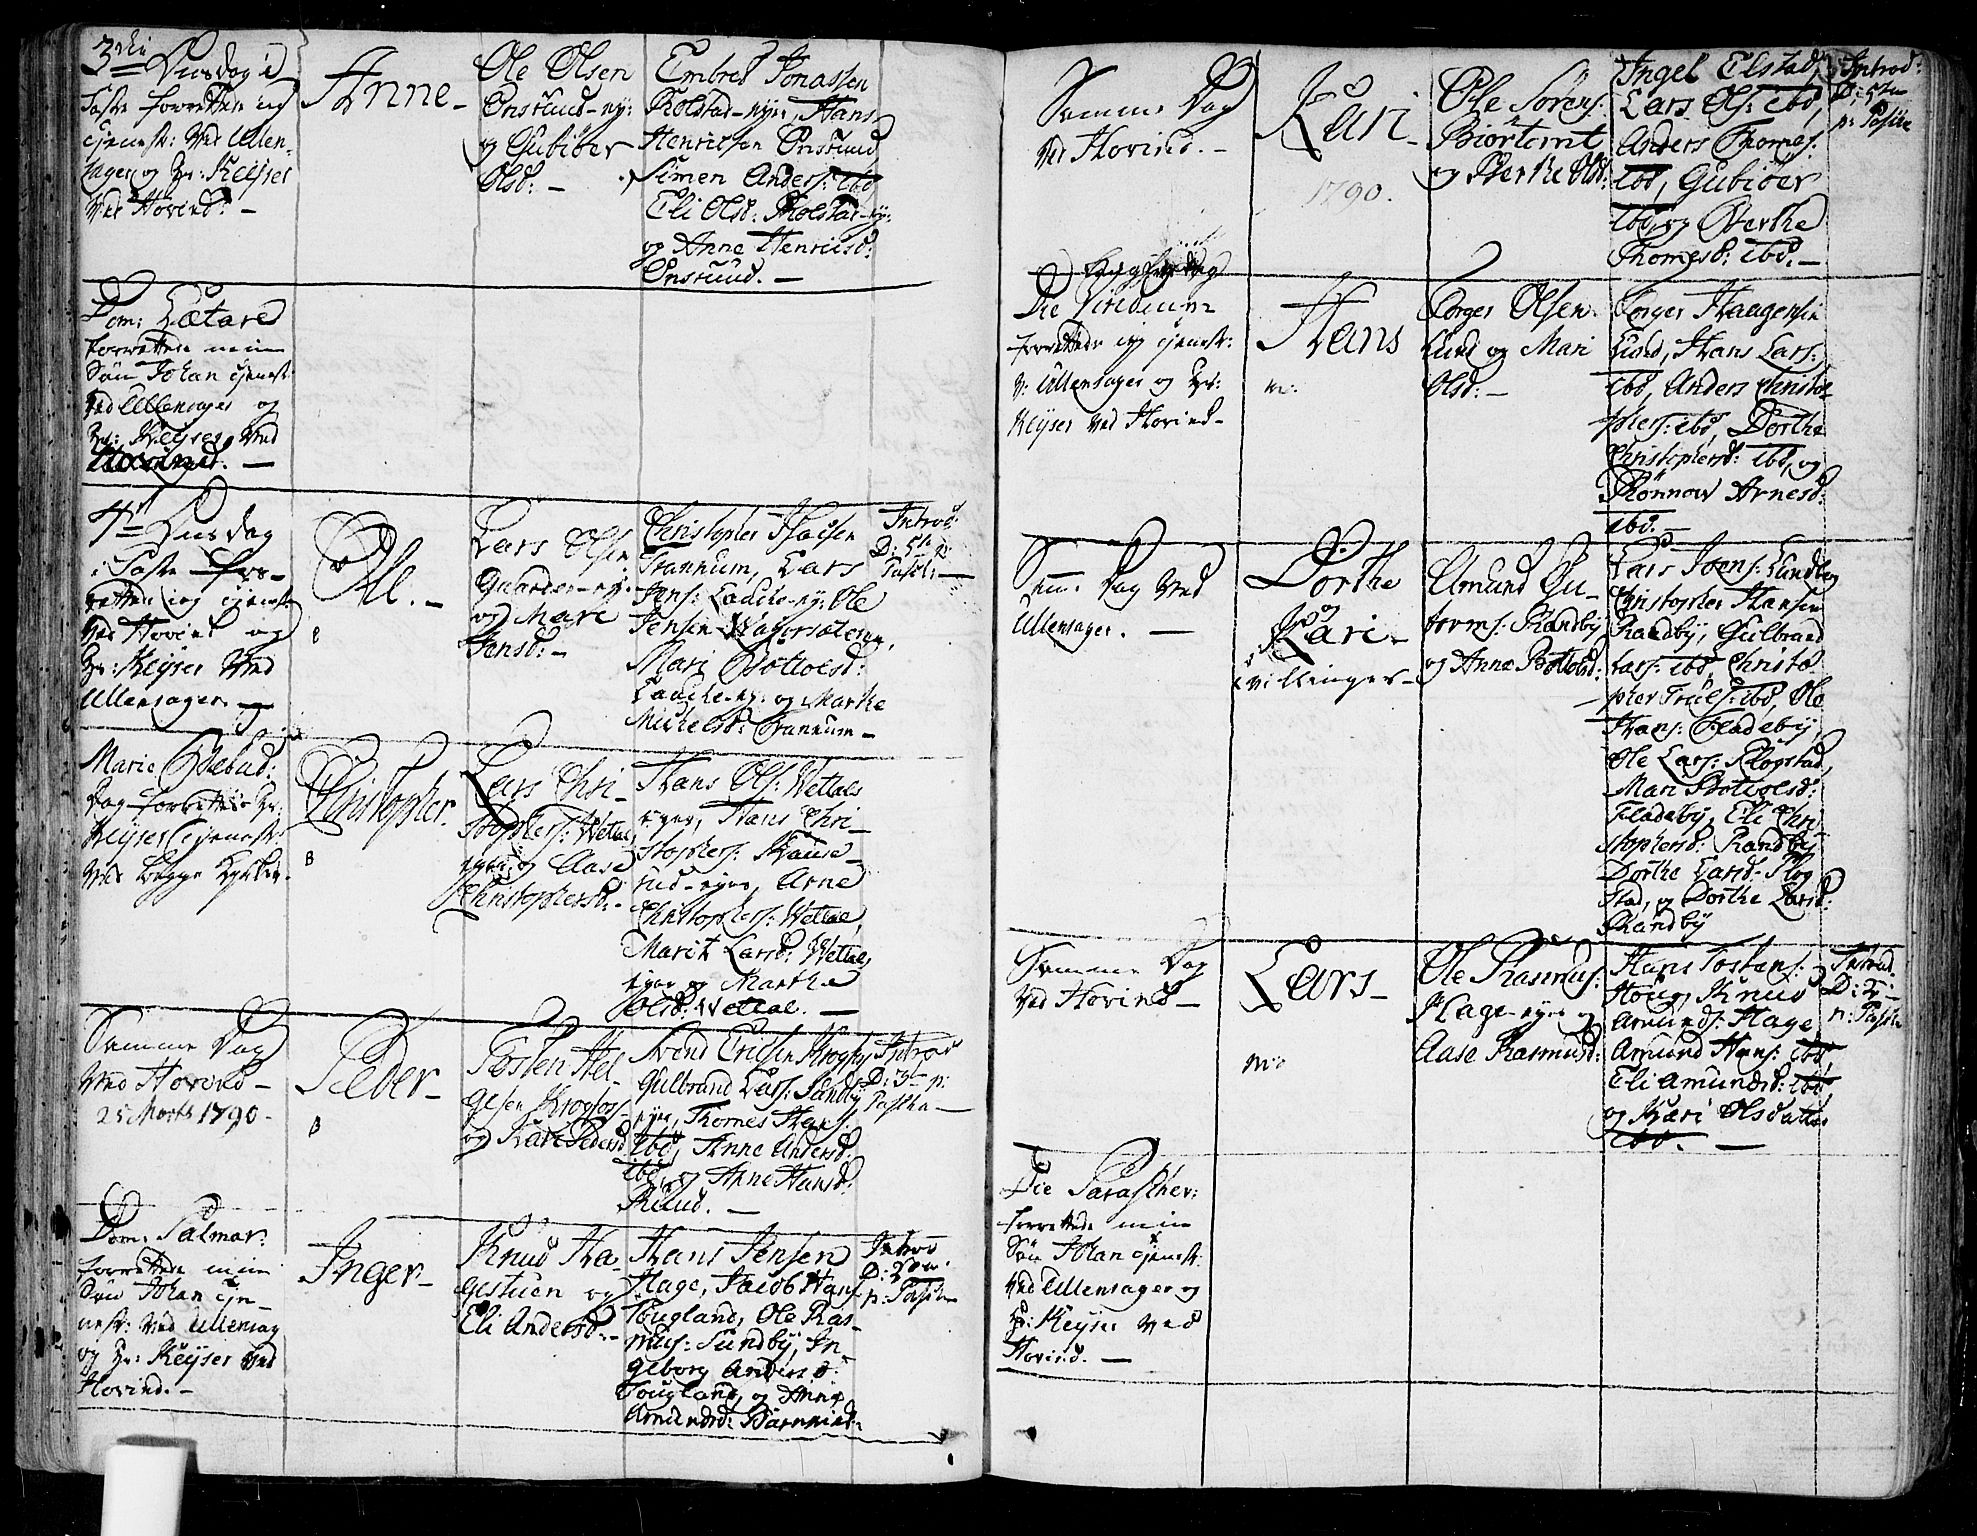 3die Tirsdag i
Faste forrettede jeg
tjenest: ved Ullen-
sager og Hr: Keyser
ved Hovind. -
Anne -
Ole Olsen
Onsrud-ey:
og Gubiøer
Olsd: -
Embret Jonassen
Kolstad-eye, Hans
Henriksen Onsrud
Simen Anders: ibd
Eli Olsd: Kolstad-ey:
og Anne Henriksd:
Onsrud. -
Dom: Lætare
forrettede min
Søn Johan tjenest:
ved Ullensager og
Hr: Keyser ved
Hovind. -
4de Tirsdag
i Faste for-
rettede jeg tjenest:
ved Hovind og
Hr: Keyser ved
Ullensager. -
Ole. -
B
Lars Olsen
og Mari
Jensd: -
Christopher
Frannum, Lars
Jens: Lauche-ey: Ole
Jensen
Mari Botolvsd:
Lauche-ey: og Marthe
Michelsd: Frannum -
Introd:
D: 5ta p:
Pasch: -
Marie Bebud:
Dag forrettede Hr:
Keyser tjenest:
ved begge Kirker. -
Christopher.
B
Lars Chri-
stophers: Wettal-
eye og Aase
Christophersd: -
Hans Ols: Wettals
eyer, Hans Chri-
stophers:
rud-eyer, Arne
Christophers: Wettal,
Marit Larsd: Wettal-
eyer og Marthe
Olsd: Wettal. -
Samme Dag
ved Hovind -
25 Marts 1790 -
Peder -
B
Tosten Hel-
gesen Krogfoss
og Kari Pedersd
Svend Erichsen Krogfos
Gulbrand Lars: Sandby
eyer, Thomes Hans:
ibd, Anne Andersd:
ibd, og Anne Hansd:
Ruud. -
Introd
D: 3tia p:
Pascha -
Dom: Palmar:
forrettede min
Søn Johan tje-
nest: ved Ullensag
og Hr: Keyser ved
Hovind. -
Inger -
Knud Ha-
gestuen og
Eli Andersd: -
Hans Jensen
Hage, Jacob Hans
Tougland, Ole Ras-
mus: Sundby, In-
geborg Andersd:
Tougland, og Anne
Amundsd:
Introd
D: 2da
p: Pascha
Samme Dag
ved Hovind. -
Kari -
1790.
Ole Sørens:
Biørtomt
og Berthe Olsd:
Ingel Elstad,
Lars Ols: ibd,
Anders Thomes:
ibd, Gubiøer
ibd, og Berthe
Thomesd: ibd. -
Introd:
D: 5ta
p: Pascha
Die Viridium
forrettede jeg tjenest:
v: Ullensager og Hr:
Keyser ved Hovind -
Hans
Torger Olsen
Lund og Mari
Olsd: -
Torger Haagensen
Lund, Hans Lars:
ibd, Anders Christo-
phers: ibd, Dorthe
Christophersd: ibd, og
Rønnow Arnesd:
ibd. -
Samme Dag ved
Ullensager. -
Dorthe
Kari -
tvillinger -
Amund Gu-
torms: Randby
og Anne Botolvsd:
Lars Joens: Lundby
Christopher Hansen
Randby, Gulbrand
Lars: ibd, Christo-
pher Truels: ibd, Ole
Hans: Fladeby,
Ole Lars: Flogstad,
Mari Botvolsd:
Fladeby, Eli Chri-
stophersd: Randby
Dorthe Larsd: Flog-
stad, og Dorthe Larsd:
Randby
Samme Dag
ved Hovind -
Lars -
Ole Rasmus:
Hage-eyer og
Aase Rasmusd:
Hans Tostens:
Houg, Knud
Amunds: Hage
Amund Hans: ibd
Eli Amundsd: ibd
og Kari Olsdatter
ibd. -
Introd.
p: Pascha
Die Parascher:
forrettede min
Søn Johan tjenest:
ved Ullensager og
Hr: Keyser ved
Hovind. -